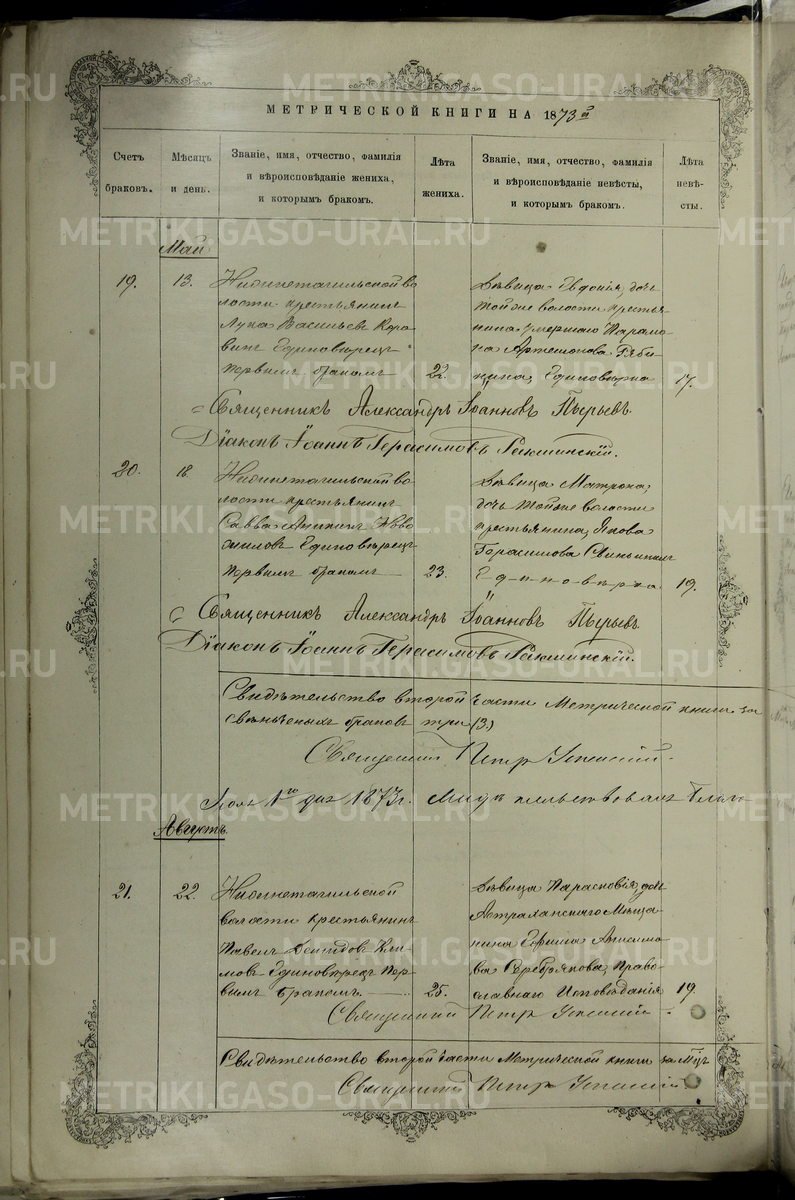 МЕТРИЧЕСКОЙ КНИГИ НА 1873й
Счетъ браковъ.
Мѣсяцъ и день.
Званіе, имя, отчество, фамилія
и вѣроисповѣданіе жениха,
и которымъ бракомъ.
Лѣта жениха.
Званіе, имя, отчество, фамилія
и вѣроисповѣданіе невѣсты,
и которымъ бракомъ.
Лѣта невѣ-
сты.
Май
19. 13.
Нижнетагильской во
лости крестьянинъ
Лука Васильевъ
Единовѣрецъ
первымъ бракомъ 22.
Дѣвица дочь
тойже волости крестья
нина умершаго Парамо
на Артемонова Ряби
нина, Единовѣрка 17.
Священникъ Александръ Іоанновъ Пырьевъ.
Діаконъ Іоаннъ Герасимовъ
20. 18.
Нижнетагильской во
лости крестьянинъ
Савва Аникинъ Ново
силовъ Единовѣрецъ
первымъ бракомъ 23.
Дѣвица Матрона,
дочь тойже волости
крестьянина, Якова
Герасимова
Единовѣрка. 19.
Священникъ Александръ Іоанновъ Пырьевъ
Діаконъ Іоаннъ Герасимовъ
Свидѣтельство второй части Метрической книги за
свѣнченыхъ браковъ три (3.)
Священникъ Петръ Успенскій.
1го дня 1873 г.
Августъ
21. 22.
Нижнетагильской
волости крестьянинъ
Павелъ Демидовъ Кли
мовъ Единовѣрецъ пер
вымъ бракомъ. 25.
Дѣвица Парасковія доч
Астраханскаго Мѣща
нина Ефима Анисимо
ва Серебрякова, Право
славнаго Исповѣданія 19.
Священникъ Петръ Успенскій.
Свидѣтельство второй части Метрической книги за Мцъ
Священникъ Петръ Успенскій
METRIKI.GASO-URAL.RU